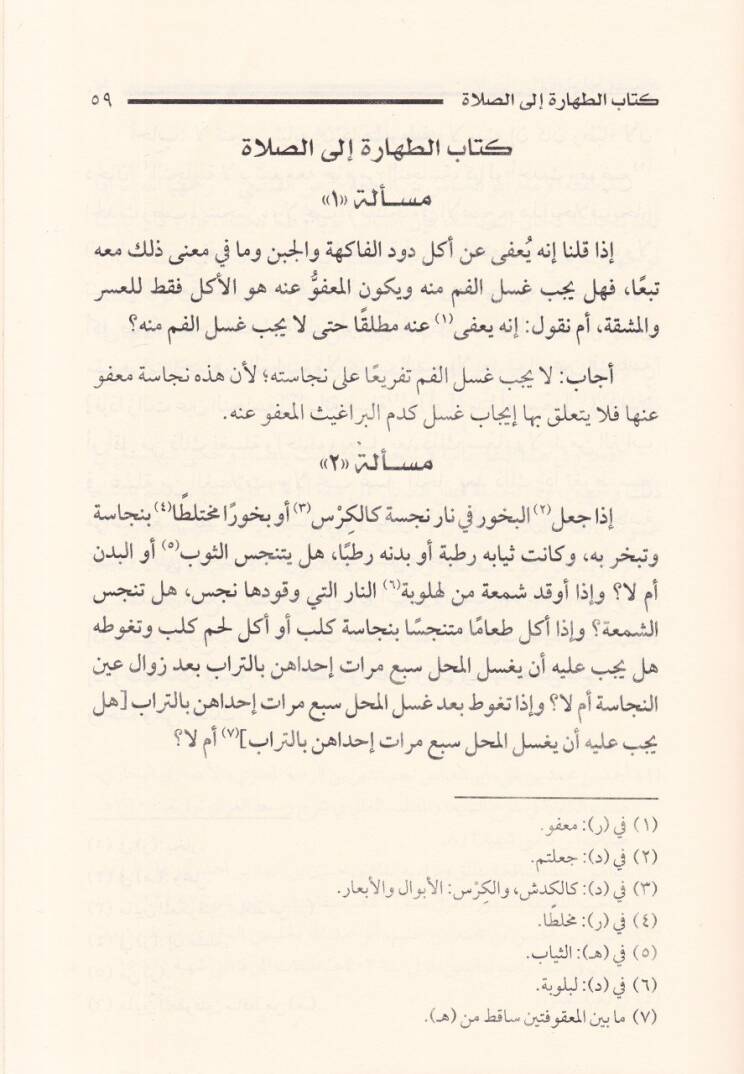 كتاب الطهارة إلى الصلاة ٥٩
كتاب الطهارة إلى الصلاة
مسألة «١»
إذا قلنا إنه يُعفى عن أكل دود الفاكهة والجبن وما في معنى ذلك معه
تبعًا، فهل يجب غسل الفم منه ويكون المعفوُّ عنه هو الأكل فقط للعسر
والمشقة، أم نقول: إنه يعفى(١) عنه مطلقًا حتى لا يجب غسل الفم منه؟
أجاب: لا يجب غسل الفم تفريعًا على نجاسته؛ لأن هذه نجاسة معفو
عنها فلا يتعلق بها إيجاب غسل كدم البراغيث المعفو عنه.
مسألة «٢»
إذا جعل(٢) البخور في نار نجسة كالكِرْس(٣) أو بخورًا مختلطًا(٤) بنجاسة
وتبخر به، وكانت ثيابه رطبة أو بدنه رطبًا، هل يتنجس الثوب(٥) أو البدن
أم لا؟ وإذا أوقد شمعة من لهلوبة(٦) النار التي وقودها نجس، هل تنجس
الشمعة؟ وإذا أكل طعامًا متنجسًا بنجاسة كلب أو أكل لحم كلب وتغوطه
هل يجب عليه أن يغسل المحل سبع مرات إحداهن بالتراب بعد زوال عين
النجاسة أم لا؟ وإذا تغوط بعد غسل المحل سبع مرات إحداهن بالتراب [هل
يجب عليه أن يغسل المحل سبع مرات إحداهن بالتراب](٧) أم لا؟
(١) في (ر): معفو.
(٢) في (د): جعلتم.
(٣) في (د): كالكدش، والكِرْس: الأبوال والأبعار.
(٤) في (ر): مخلطًا.
(٥) في (هـ): الثياب.
(٦) في (د): لبلوبة.
(٧) ما بين المعقوفتين ساقط من (هـ).